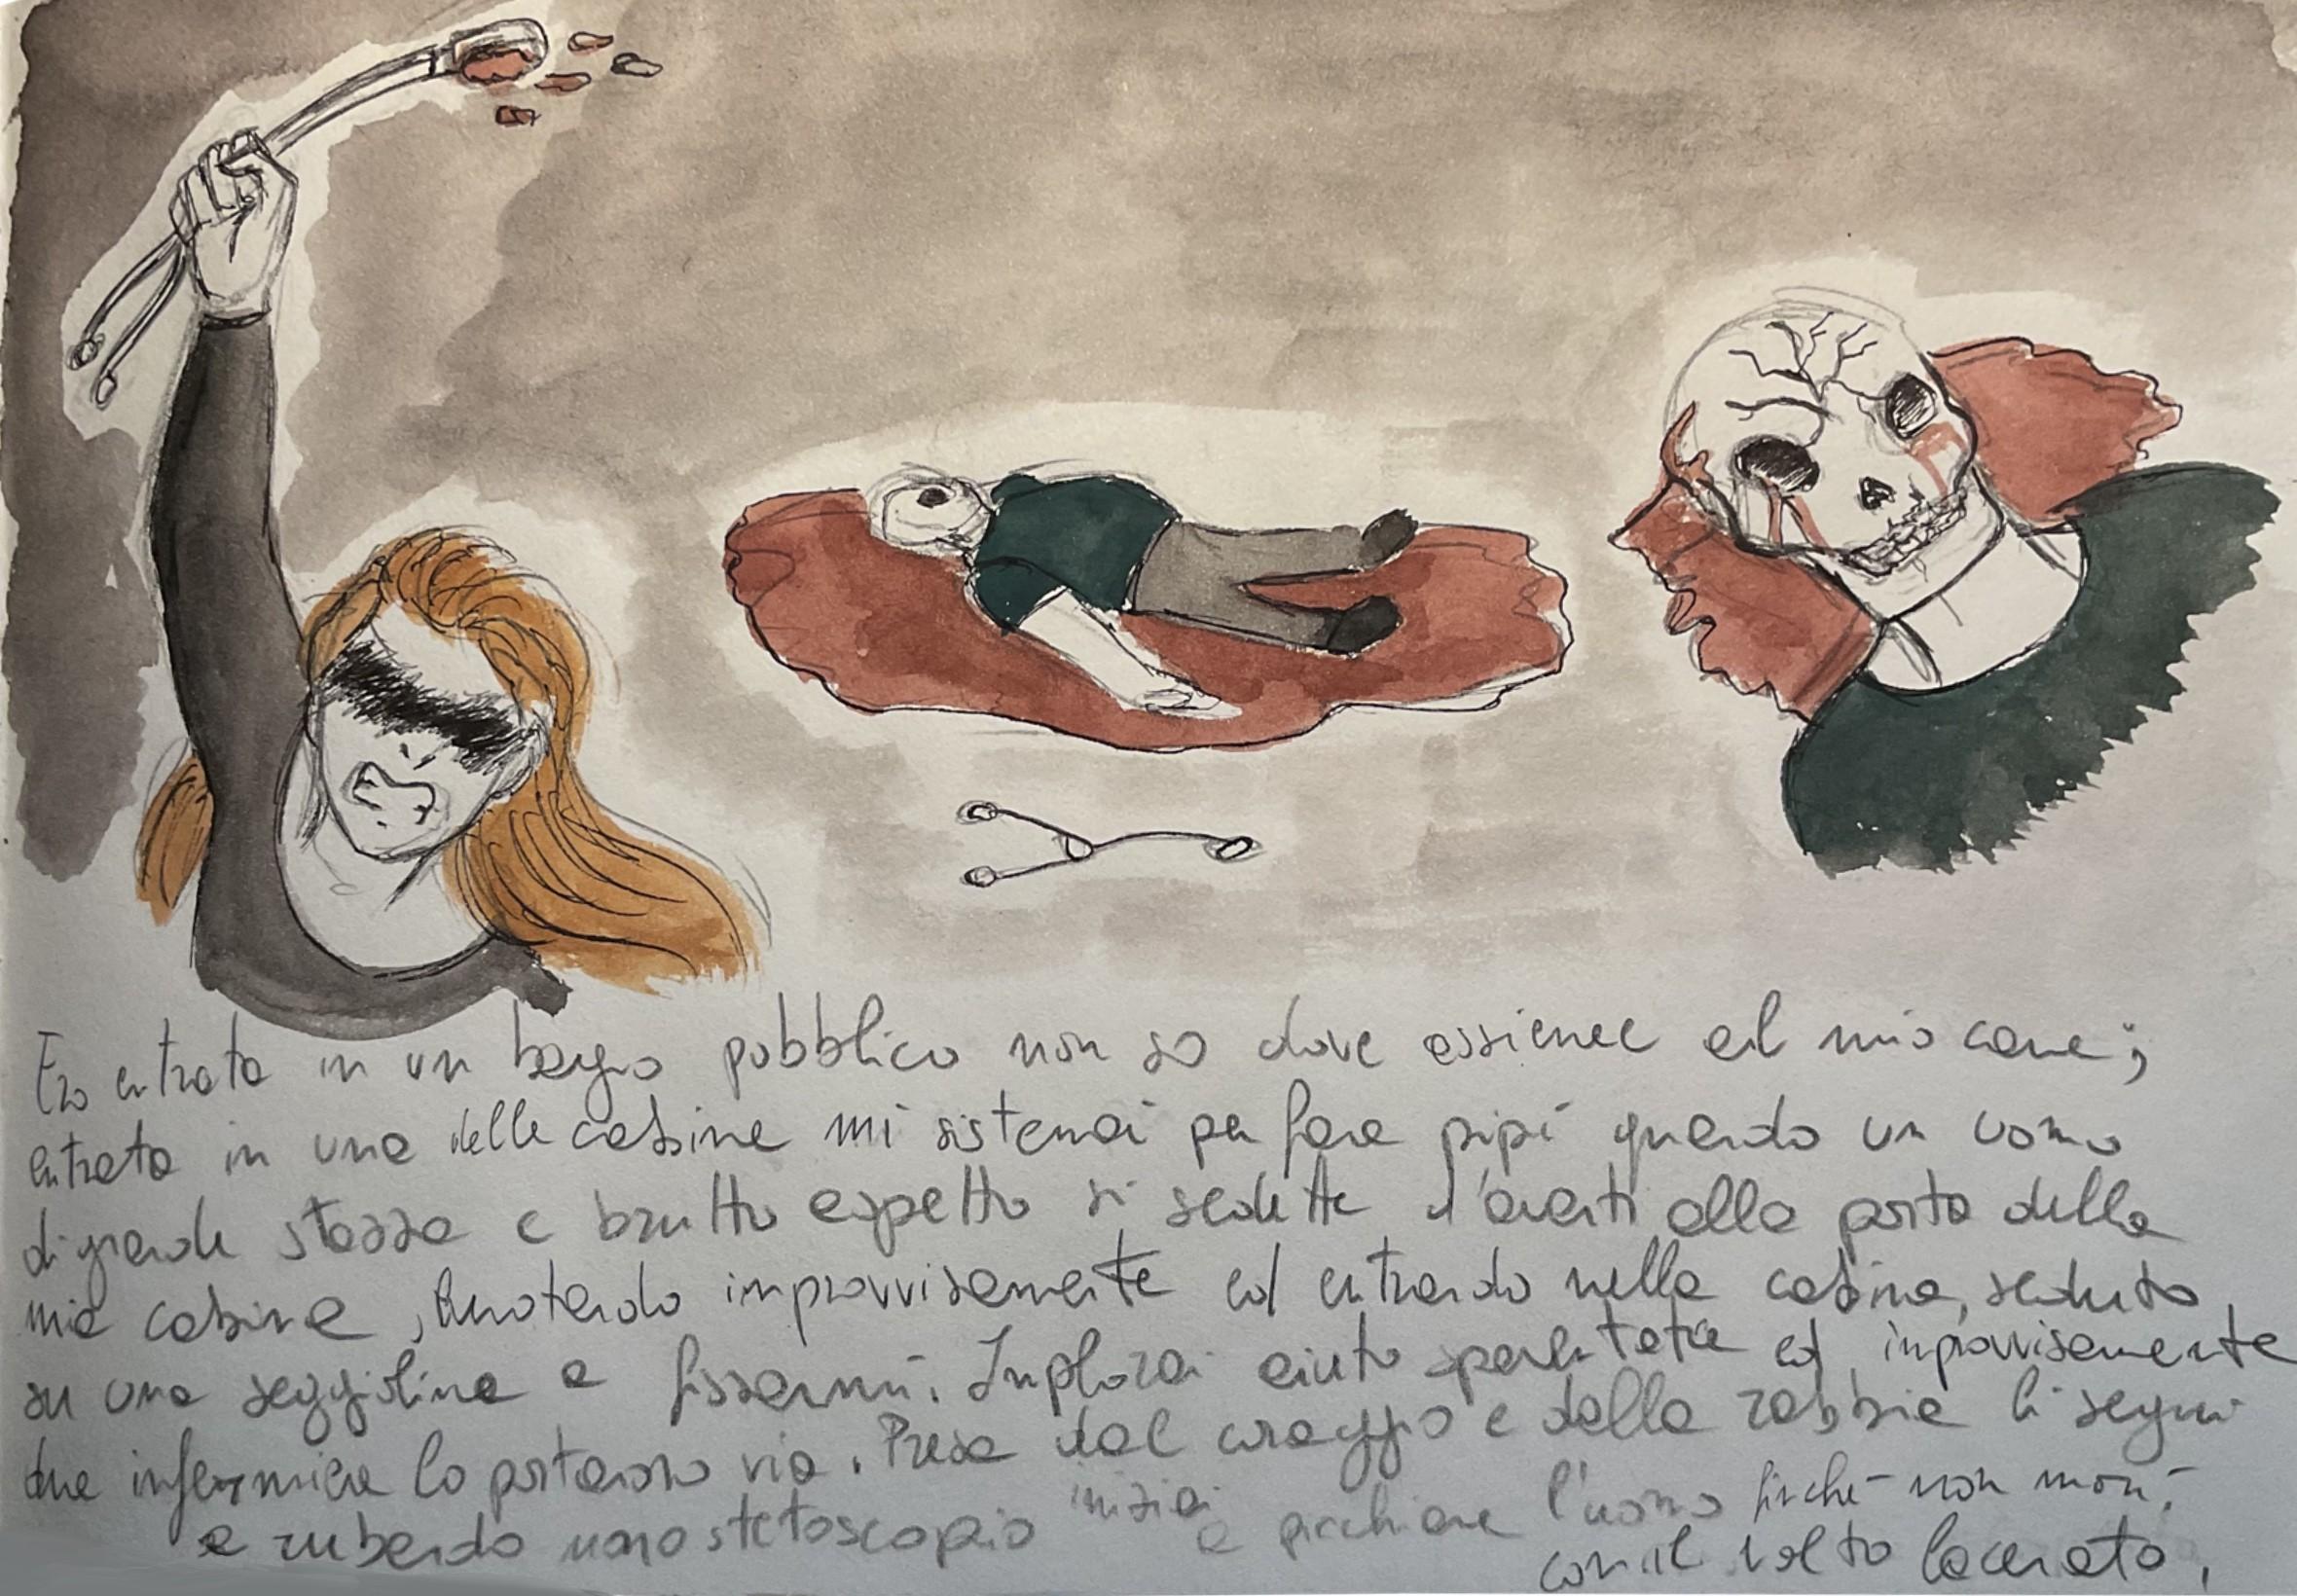 Ero entrata in un bagno pubblico non so dove assieme al mio cane;
entrata in una delle cabine mi sistemai per fare pipì quando un uomo
di grande stazza e brutto aspetto si sedette d'avanti alla porta della
mia cabina, ruotando improvvisamente ed entrando nella cabina, seduto
su una seggiolina a fissarmi. Implorai aiuto spaventata ed improvvisamente
due infermiere lo portarono via. Presa dal coraggio e dalla rabbia li seguii
e rubando uno stetoscopio iniziai a picchiare l'uomo finché non morì
con il volto lacerato.